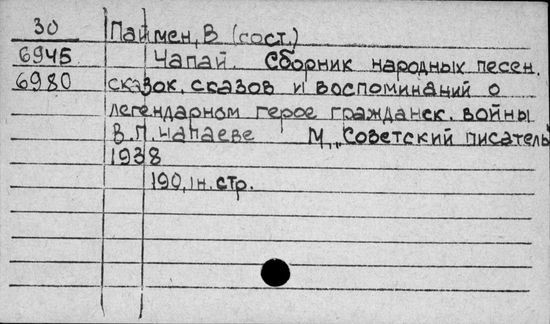 30 Паймен, В (сост.)
6945 Чапай. Сборник народных песен.
6980 сказок, сказов и воспоминаний о
легендарном герое гражданск. войны
В.П. Чапаеве М, „Советский писатель
1938
190, 1н. стр.